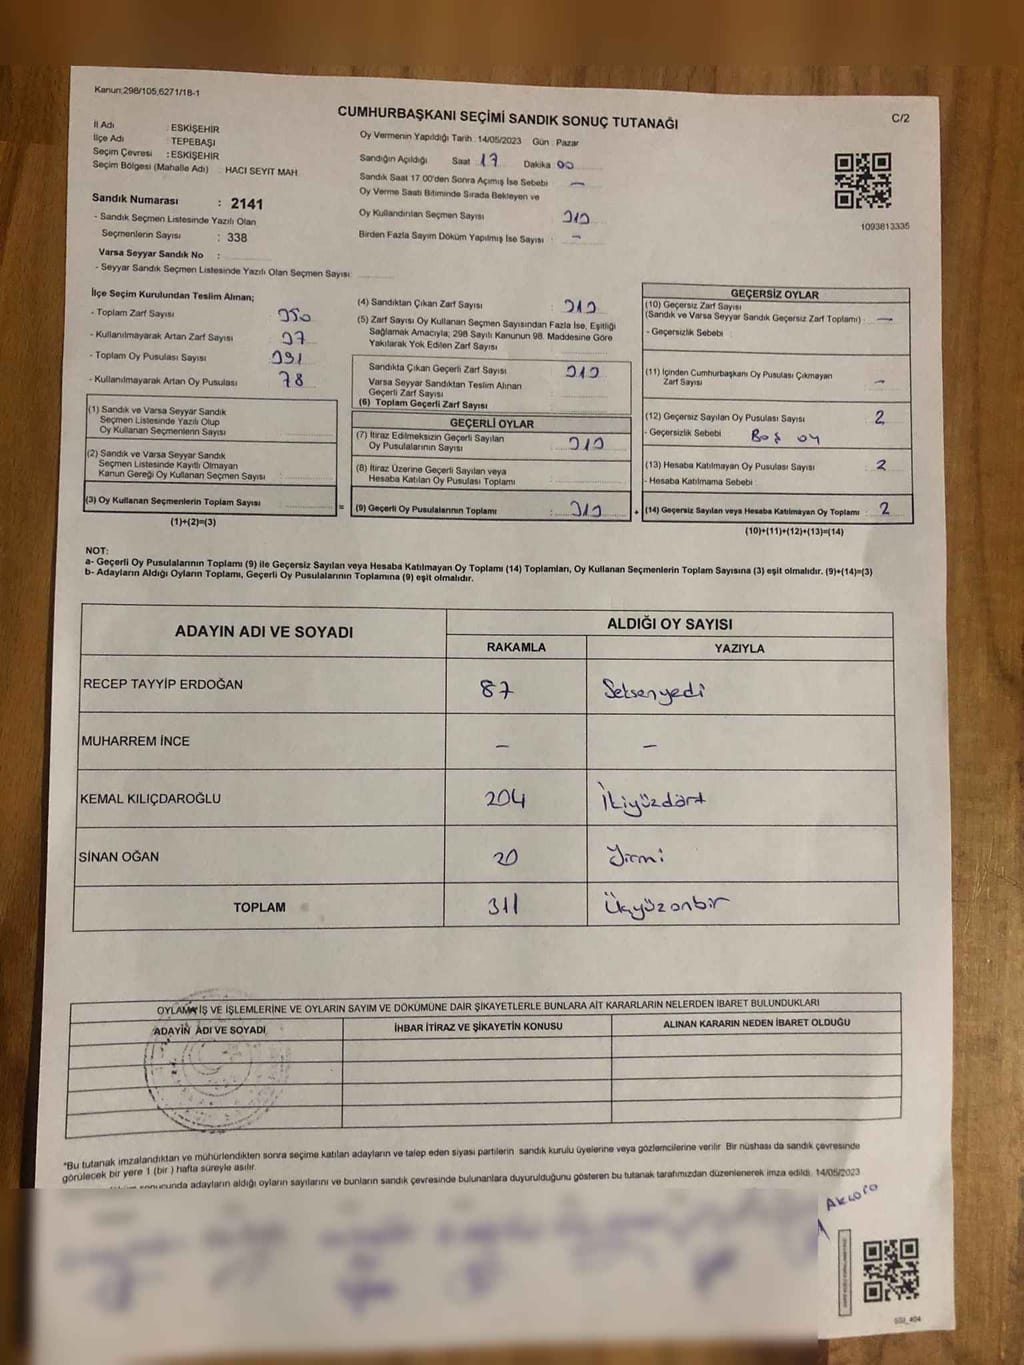 Kanun:298/105,6271/18-1
CUMHURBAŞKANI SEÇİMİ SANDIK SONUÇ TUTANAĞI
C/2
İl Adı : ESKİŞEHİR
İlçe Adı : TEPEBAŞI
Seçim Çevresi : ESKİŞEHİR
Seçim Bölgesi (Mahalle Adı) : HACI SEYIT MAH
Sandık Numarası : 2141
- Sandık Seçmen Listesinde Yazılı Olan
Seçmenlerin Sayısı : 338
Varsa Seyyar Sandık No :
- Seyyar Sandık Seçmen Listesinde Yazılı Olan Seçmen Sayısı:
Oy Vermenin Yapıldığı Tarih : 14/05/2023 Gün : Pazar
Sandığın Açıldığı Saat 17 Dakika 00
Sandık Saat 17.00'den Sonra Açımış İse Sebebi –
Oy Verme Saati Bitiminde Sırada Bekleyen ve
Oy Kullandırılan Seçmen Sayısı
Birden Fazla Sayım Döküm Yapılmış İse Sayısı : –
1093813335
İlçe Seçim Kurulundan Teslim Alınan;
- Toplam Zarf Sayısı 350
- Kullanılmayarak Artan Zarf Sayısı 37
- Toplam Oy Pusulası Sayısı 391
- Kullanılmayarak Artan Oy Pusulası 78
(1) Sandık ve Varsa Seyyar Sandık
Seçmen Listesinde Yazılı Olup
Oy Kullanan Seçmenlerin Sayısı
(2) Sandık ve Varsa Seyyar Sandık
Seçmen Listesinde Kayıtlı Olmayan
Kanun Gereği Oy Kullanan Seçmen Sayısı :
(3) Oy Kullanan Seçmenlerin Toplam Sayısı
(1)+(2)=(3)
=
(4) Sandıktan Çıkan Zarf Sayısı : 313
(5) Zarf Sayısı Oy Kullanan Seçmen Sayısından Fazla İse, Eşitliği
Sağlamak Amacıyla; 298 Sayılı Kanunun 98. Maddesine Göre
Yakılarak Yok Edilen Zarf Sayısı
Sandıkta Çıkan Geçerli Zarf Sayısı : 313
Varsa Seyyar Sandıktan Teslim Alınan
Geçerli Zarf Sayısı
(6) Toplam Geçerli Zarf Sayısı
GEÇERLİ OYLAR
(7) İtiraz Edilmeksizin Geçerli Sayılan
Oy Pusulalarının Sayısı
(8) İtiraz Üzerine Geçerli Sayılan veya
Hesaba Katılan Oy Pusulası Toplamı
(9) Geçerli Oy Pusulalarının Toplamı :
+
GEÇERSİZ OYLAR
(10) Geçersiz Zarf Sayısı
(Sandık ve Varsa Seyyar Sandık Geçersiz Zarf Toplamı) : –
- Geçersizlik Sebebi :
(11) İçinden Cumhurbaşkanı Oy Pusulası Çıkmayan
Zarf Sayısı –
(12) Geçersiz Sayılan Oy Pusulası Sayısı 2
- Geçersizlik Sebebi : Boş oy
(13) Hesaba Katılmayan Oy Pusulası Sayısı 2
- Hesaba Katılmama Sebebi :
(14) Geçersiz Sayılan veya Hesaba Katılmayan Oy Toplamı : 2
(10)+(11)+(12)+(13)=(14)
NOT:
a- Geçerli Oy Pusulalarının Toplamı (9) ile Geçersiz Sayılan veya Hesaba Katılmayan Oy Toplamı (14) Toplamları, Oy Kullanan Seçmenlerin Toplam Sayısına (3) eşit olmalıdır. (9)+(14)=(3)
b- Adayların Aldığı Oyların Toplamı, Geçerli Oy Pusulalarının Toplamına (9) eşit olmalıdır.
ADAYIN ADI VE SOYADI
ALDIĞI OY SAYISI
RAKAMLA YAZIYLA
RECEP TAYYİP ERDOĞAN 87 Seksenyedi
MUHARREM İNCE – –
KEMAL KILIÇDAROĞLU 204 İkiyüzdört
SİNAN OĞAN 20 Yirmi
TOPLAM 311 Üçyüzonbir
OYLAMA İŞ VE İŞLEMLERİNE VE OYLARIN SAYIM VE DÖKÜMÜNE DAİR ŞİKAYETLERLE BUNLARA AİT KARARLARIN NELERDEN İBARET BULUNDUKLARI
ADAYIN ADI VE SOYADI İHBAR İTİRAZ VE ŞİKAYETİN KONUSU ALINAN KARARIN NEDEN İBARET OLDUĞU
"Bu tutanak imzalandıktan ve mühürlendikten sonra seçime katılan adayların ve talep eden siyasi partilerin sandık kurulu üyelerine veya gözlemcilerine verilir. Bir nüshası da sandık çevresinde
görülecek bir yere 1 (bir ) hafta süreyle asılır.
sonucunda adayların aldığı oyların sayılarını ve bunların sandık çevresinde bulunanlara duyurulduğunu gösteren bu tutanak tarafımızdan düzenlenerek imza edildi. 14/05/2023